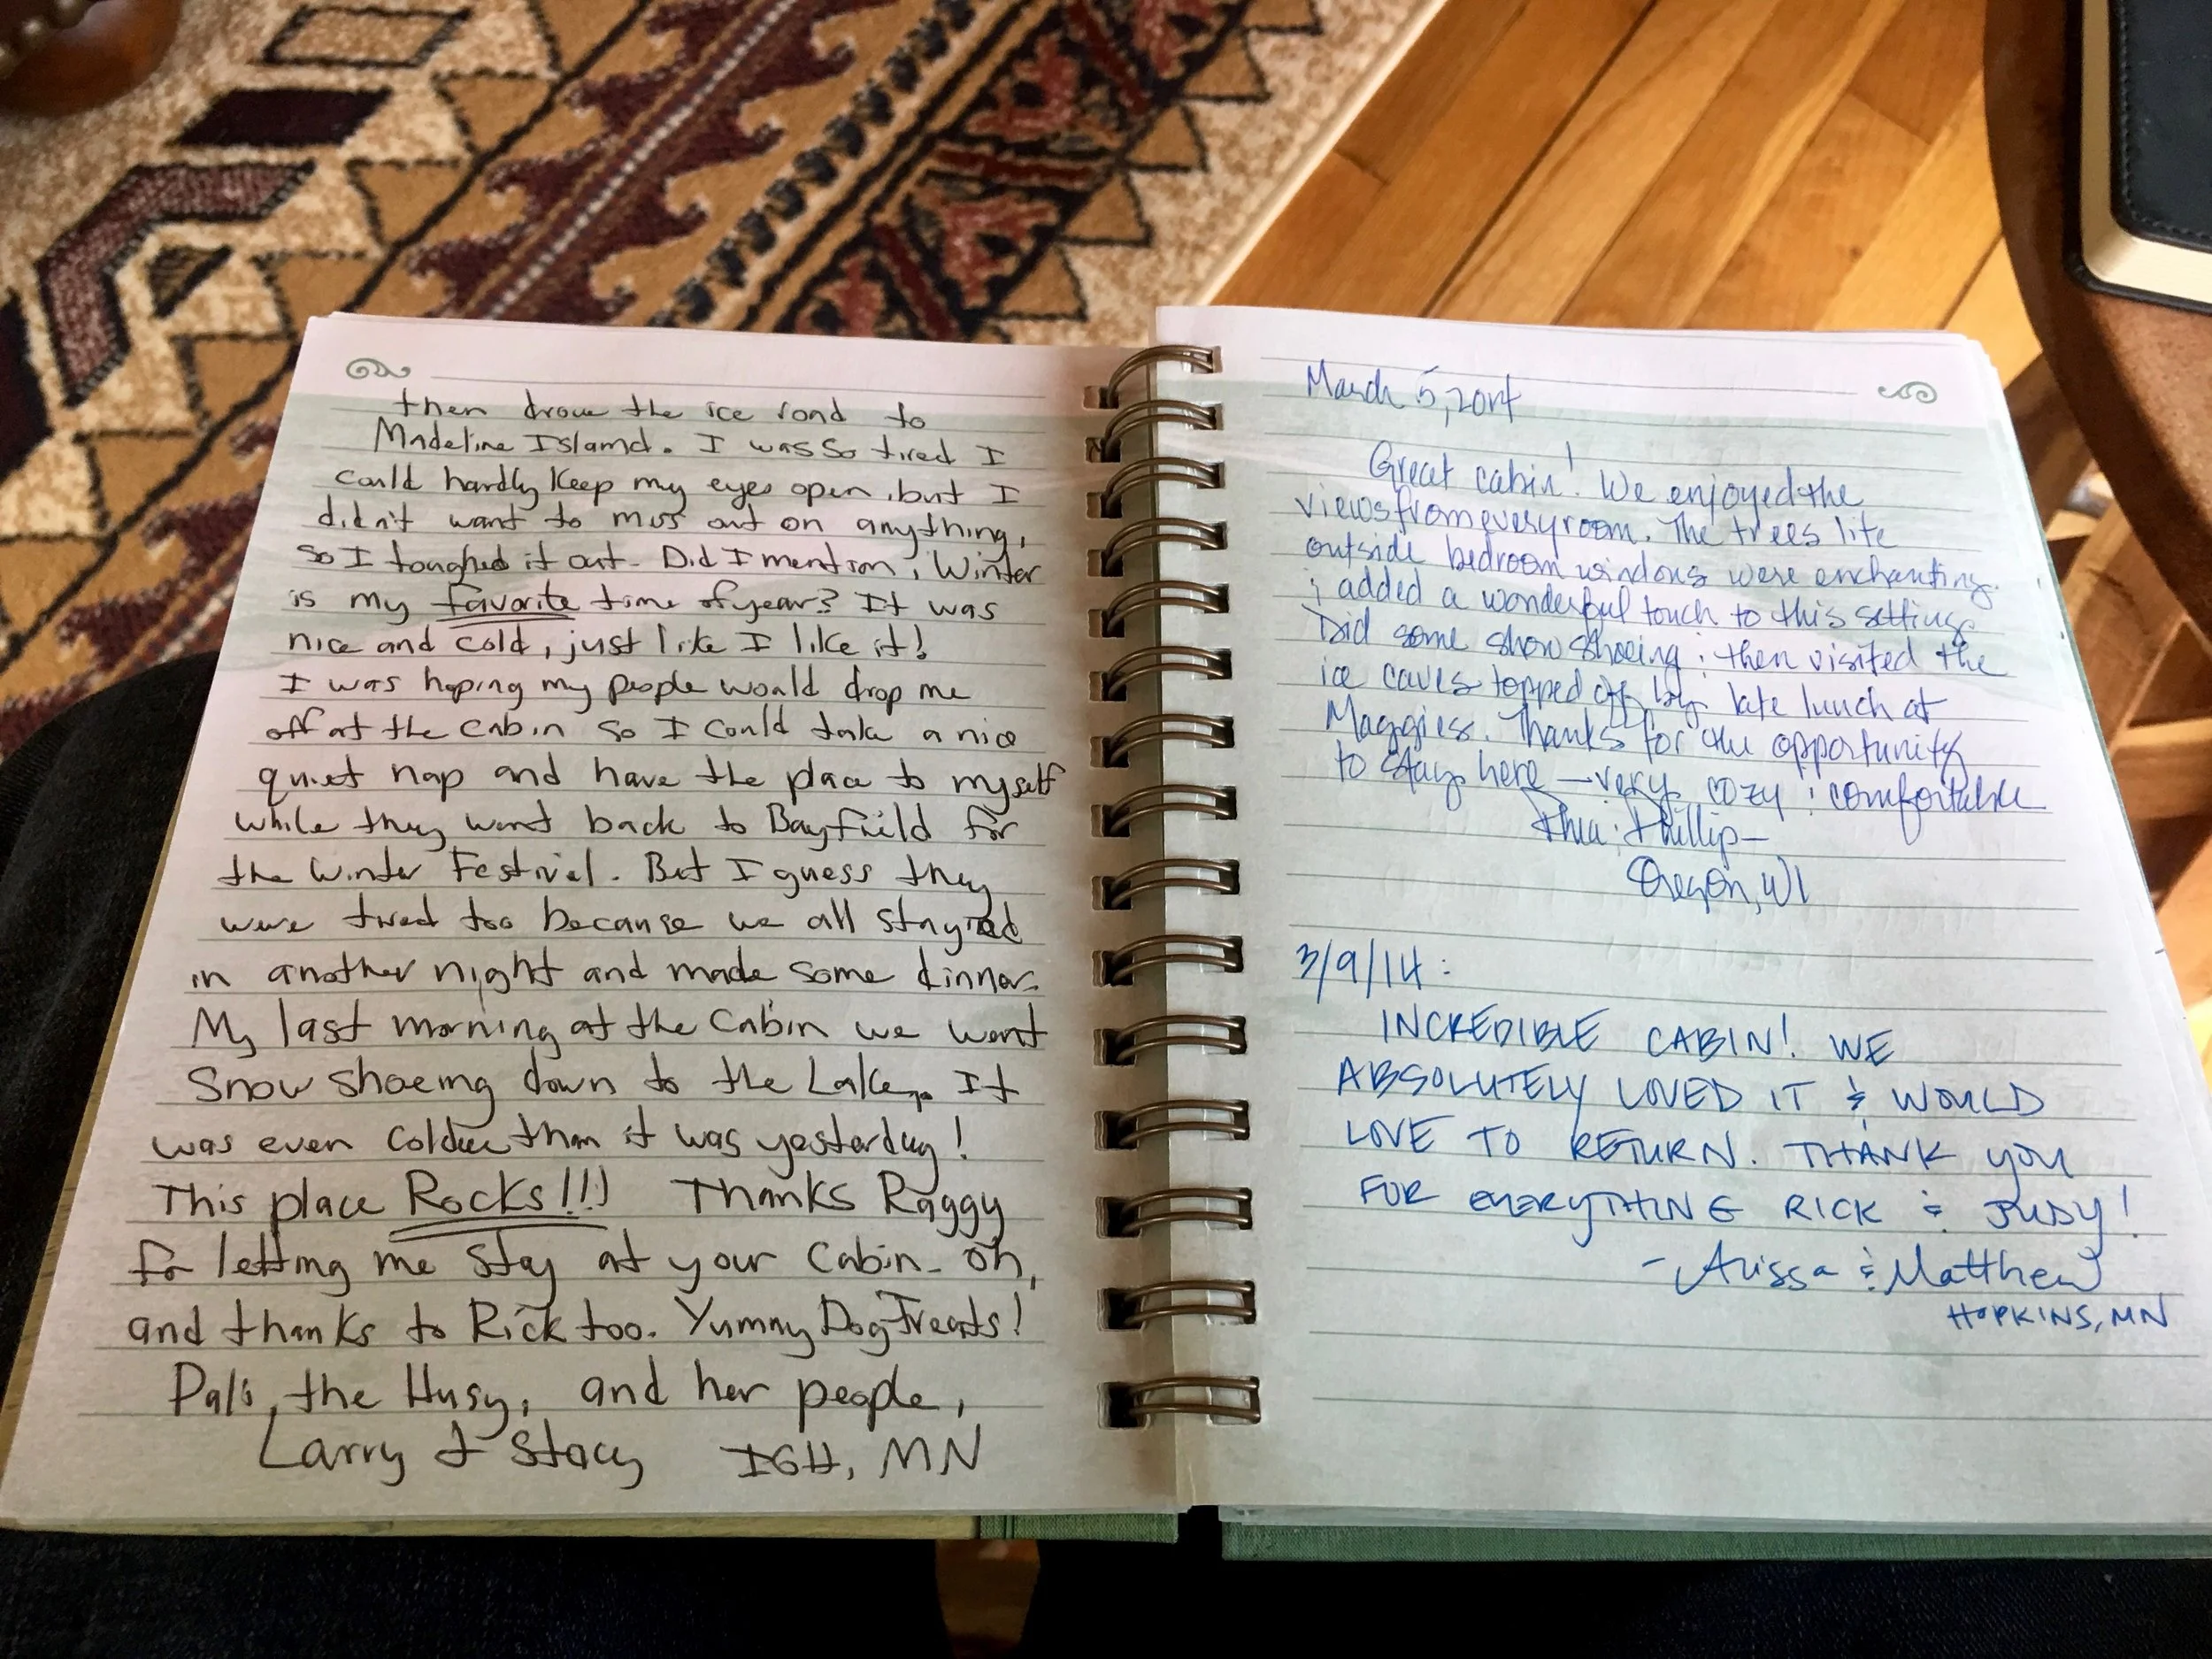 then drove the ice road to
Madeline Island. I was so tired I
could hardly keep my eyes open, but I
didn't want to miss out on anything,
so I toughed it out. Did I mention, Winter
is my favorite time of year? It was
nice and cold, just like I like it!
I was hoping my people would drop me
off at the cabin so I could take a nice
quiet nap and have the place to myself
while they went back to Bayfield for
the Winter Festival. But I guess they
were tired too because we all stayed
in another night and made some dinner.
My last morning at the Cabin we went
Snow shoeing down to the Lake. It
was even colder than it was yesterday!
This place Rocks!!! Thanks Raggy
for letting me stay at your cabin. Oh,
and thanks to Rick too. Yummy Dog Treats!
the Husy, and her people,
Larry & Stacy IGH, MN
March 5, 2014
Great cabin! We enjoyed the
views from every room. The trees lite
outside bedroom windows were enchanting
& added a wonderful touch to this setting.
Did some snow shoeing & then visited the
ice caves topped off by late lunch at
Maggies. Thanks for the opportunity
to stay here — very cozy & comfortable
& Phillip—
Oregon, WI
3/9/14:
INCREDIBLE CABIN! WE
ABSOLUTELY LOVED IT & WOULD
LOVE TO RETURN. THANK YOU
FOR EVERYTHING RICK & JUDY!
- Arissa & Matthew
HOPKINS, MN